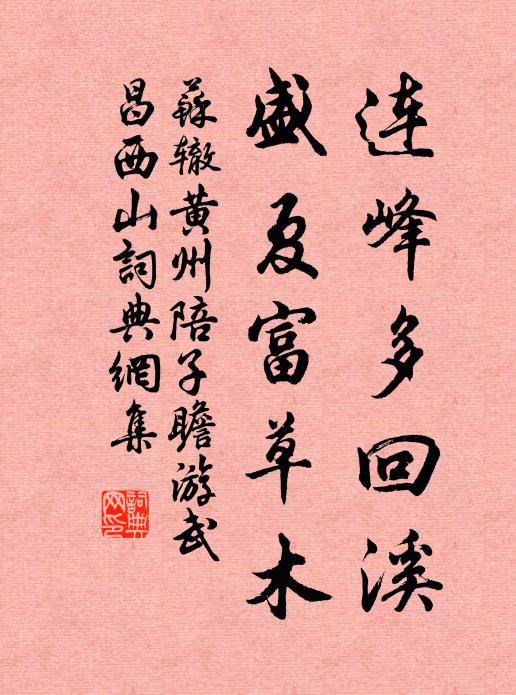 连峰多回溪
盛夏富草木
蘇辙黄州陪子瞻游武
昌西山詞典網集
詞典
网印